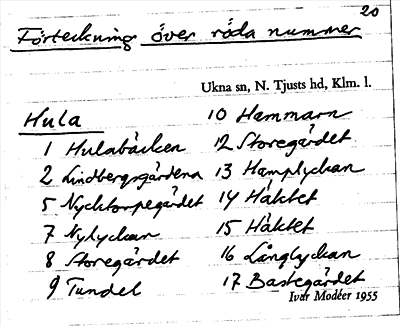 20
Förteckning över röda nummer
Ukna sn, N. Tjusts hd, Klm. l.
Hula
1 Hulabäcken
2 Lindbergsgärdena
5 Nycktorpegärdet
7 Nylyckan
8 Storegärdet
9 Tundel
10 Hammarn
12 Storegärdet
13 Hamplyckan
14 Häktet
15 Häktet
16 Långlyckan
17 Bastegärdet
Ivar Modéer 1955